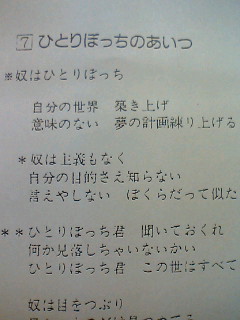 7 ひとりぼっちのあいつ
※奴はひとりぼっち
自分の世界 築き上げ
意味のない 夢の計画練り上げる
*奴は主義もなく
自分の目的さえ知らない
言えやしない ぼくらだって似た
**ひとりぼっち君 聞いておくれ
何か見落しちゃいないかい
ひとりぼっち君 この世はすべて
奴は目をつぶり